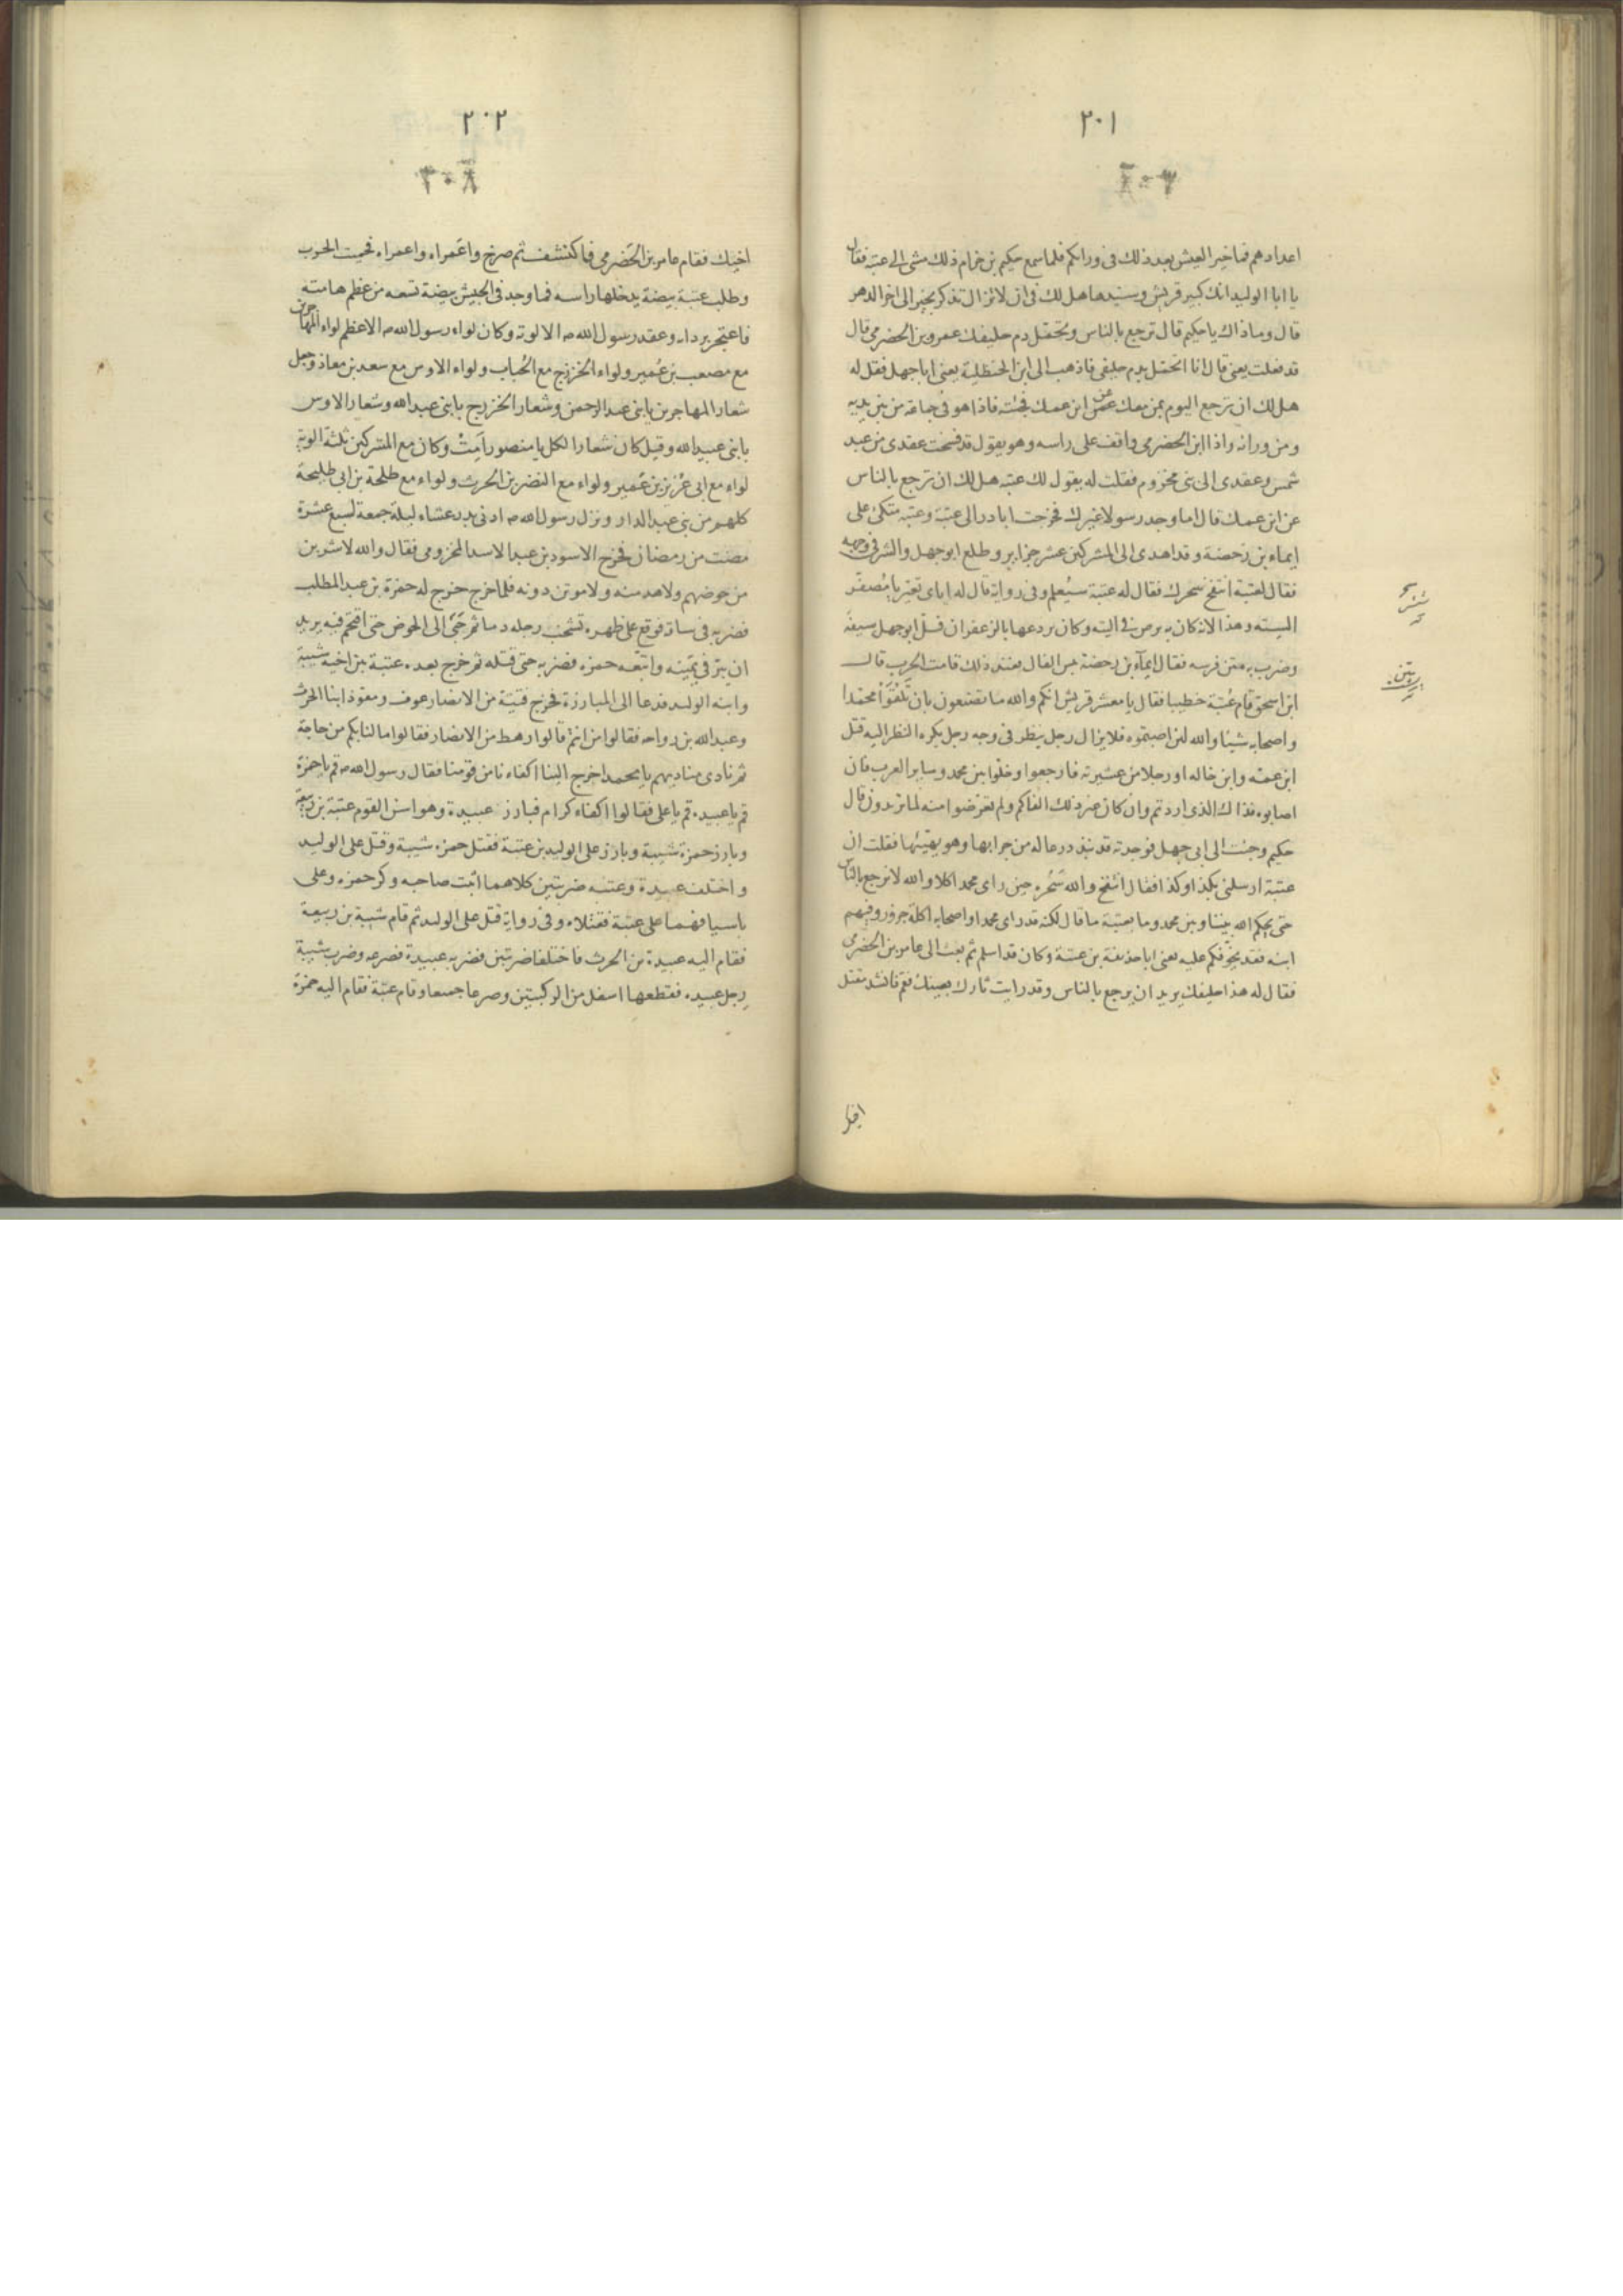 ٢٠١
اعدادهم فما خير العيش بعد ذلك فروا رائكم فلما سمع حكيم بن حزام ذلك مشى الى عتبة فقال
يا ابا الوليد انك كبير قريش وسيدها هل لك فى ان لا تزال تذكر بخير الى اخر الدهر
قال وما ذاك يا حكيم قال ترجع بالناس وتحتمل دم حليفك عمرو بن الحضرمى قال
قد فعلت يعنى قال انا اتحمل بدم حليفى فاذهب الى ابن الحنظلية يعنى ابا جهل فقل له
هل لك ان ترجع اليوم بمن معك عن ابن عمك فجئته فاذا هو فى جماعة من بين يديه
ومن ورائه واذا ابن الحضرمى واقف على راسه وهو يقول قد فسخت عقدى من عبد
شمس وعقدى الى بنى مخزوم فقلت له يقول لك عتبه هل لك ان ترجع بالناس
عن ابن عمك قال اما وجد رسولا غيرك فخرجت ابادر الى عتبة وعتبه متكئ على
ايماء بن رحضة وقد اهدى الى المشركين عشر جزاير وطلع ابو جهل والشر فى وجهه
فقال لعتبة انتفخ سحرك فقال له عتبة ستعلم وفى رواية قال له اياى تعير يا مصفر
اليسته وهذا لانه كان به برص فى اليته وكان يردعها بالزعفران فسل ابو جهل سيفه
وضرب به متن فرسه فقال ايماء بن رحضة بئس الفال فعند ذلك قامت الحرب قال
ابن اسحق قام عتبة خطيبا فقال يا معشر قريش انكم والله ما تصنعون بان تلقوا محمدا
واصحابه شيئا والله لئن اصبتموه فلا يزال رجل ينظر فى وجه رجل يكره النظر اليه قتل
ابن عمه وابن خاله او رجلا من عشيرته فارجعوا وخلوا بين محمد وساير العرب فان
اصابوه فذاك الذى اردتم وان كان غير ذلك الفاكم ولم تعرضوا منه لما تريدون قال
حكيم وجئت الى ابى جهل فوجدته قد نثد درعا له من جرابها وهو يهيئها فقلت ان
عتبة ارسلنى بكذا وكذا فقال انتفخ والله سحره حين راى محمدا كلا والله لا نرجع بالناس
حتى يحكم الله بيننا وبين محمد وما بعتبة ما قال لكنه قد راى محمدا واصحابه اكلة جزور وفيهم
ابنه فقد يخوفكم عليه يعنى ابا حذيفة بن عتبة وكان قد اسلم ثم بعث الى عامر بن الحضرمى
فقال له هذا حليفك يريد ان يرجع بالناس وقد رايت ثارك بعينك فقم فانشد مقتل
٢٠٢
٣٠٨
اخيك فقام عامر بن الحضرمى فاكتشف ثم صرخ واعمراه واعمراه فحميت الحرب
وطلب عتبة بيضة يدخلها راسه فما وجد فى الجيش بيضة تسعه من عظم هامته
فاعتجر بردائه وعقد رسول الله ص الالوية وكان لواء رسول الله ص الاعظم لواء المهاجرين
مع مصعب بن عمير ولواء الخزرج مع الحباب ولواء الاوس مع سعد بن معاذ وجعل
شعار المهاجرين يا بنى عبد الرحمن وشعار الخزرج يا بنى عبد الله وشعار الاوس
يا بنى عبيد الله وقيل كان شعار الكل يا منصور امت وكان مع المشركين ثلثة الوية
لواء مع ابى عزيز بن عمير ولواء مع النضر بن الحرث ولواء مع طلحة بن ابى طلحة
كلهم من بنى عبد الدار ونزل رسول الله ص ادنى بدر عشاء ليلة جمعة لسبع عشرة
مضت من رمضان فخرج الاسود بن عبد الاسد المخزومى فقال والله لاشربن
من حوضهم ولاهدمنه ولاموتن دونه فلما خرج خرج له حمزة بن عبد المطلب
فضربه فى ساقه فوقع على ظهره تشخب رجله دما ثم حبى الى الحوض حتى اقتحم فيه يريد
ان يبر فى يمينه واتبعه حمزه فضربه حتى قتله ثم خرج بعده عتبة بين اخيه شيبة
وابنه الوليد فدعا الى المبارزة فخرج فتية من الانصار عوف ومعوذ ابنا الحرث
وعبد الله بن رواحه فقالوا من انتم قالوا رهط من الانصار فقالوا ما لنا بكم من حاجة
ثم نادى مناديهم يا محمد اخرج الينا اكفاءنا من قومنا فقال رسول الله ص قم يا حمزة
قم يا عبيده قم يا على فقالوا اكفاء كرام فبارز عبيدة وهو اسن القوم عتبة بن ربيعة
وبارز حمزة شيبة وبارز على الوليد بن عتبة فقتل حمزه شيبة وقتل على الوليد
واختلف عبيدة وعتبه ضربتين كلاهما اثبت صاحبه وكر حمزه وعلى
باسيافهما على عتبة فقتلاه وفى رواية قتل على الوليد ثم قام شيبة بن ربيعة
فقام اليه عبيدة بن الحرث فاختلفا ضربتين فضربه عبيدة فصرعه وضرب شيبة
رجل عبيده فقطعها اسفل من الركبتين وصرعا جميعا وقام عتبة فقام اليه حمزة